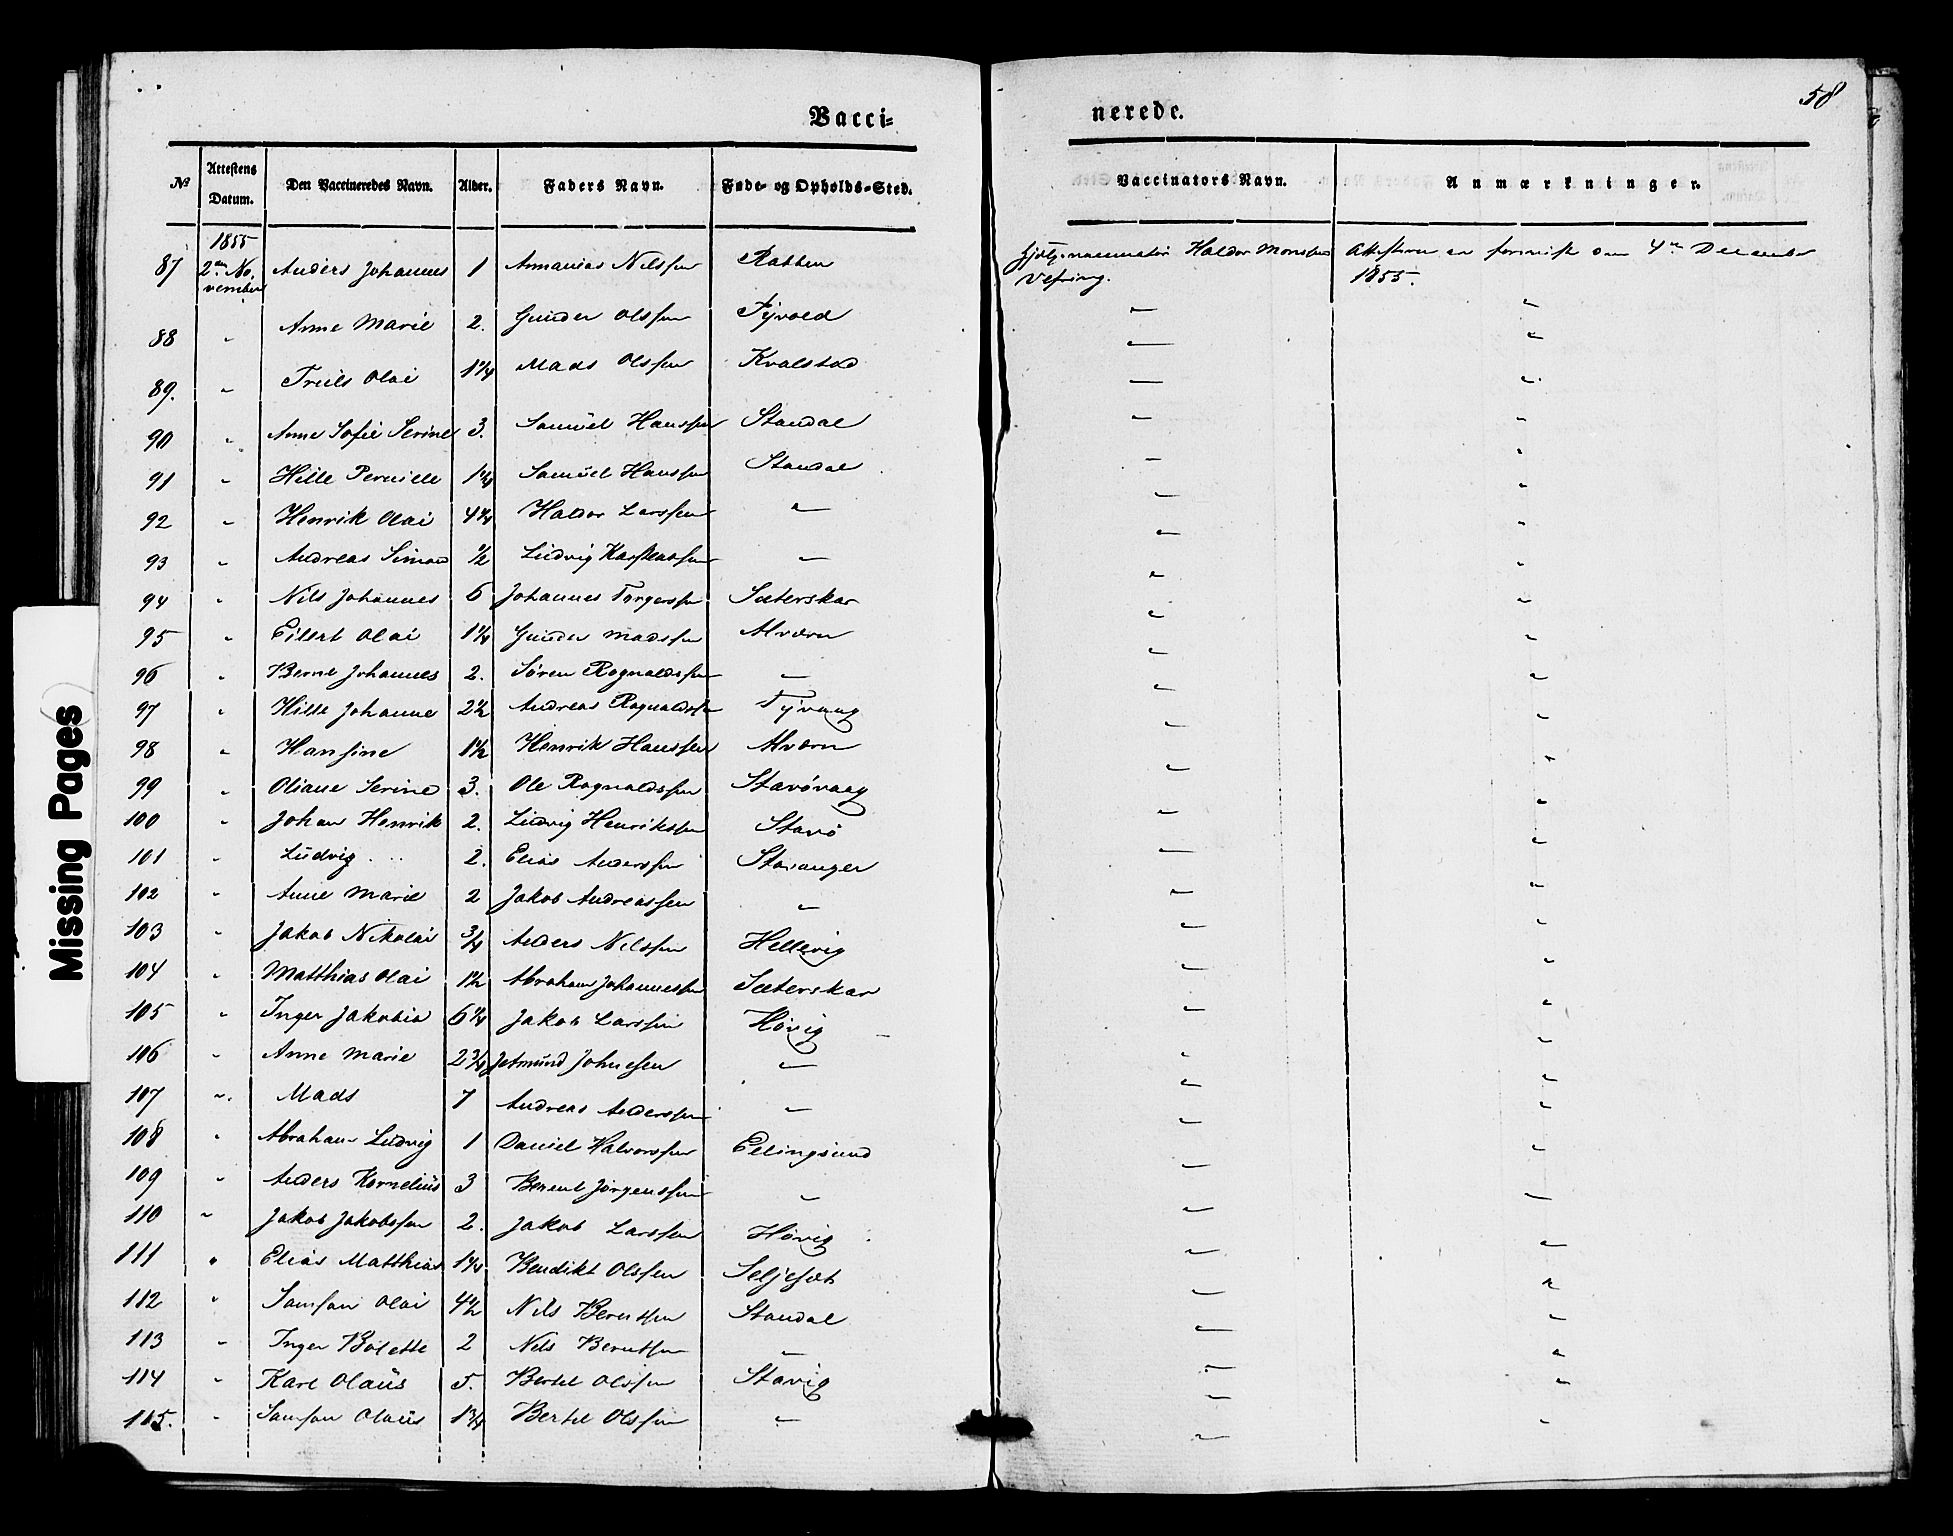 58
Vacci= nerede.
№ Attestens Datum. Den Vaccineredes Navn. Alder. Faders Navn. Føde- og Opholds-Sted. Vaccinators Navn. Anmærkninger.
1855
87 2den November Anders Johannes 1 Annanias Nilssen Rabben Hjelpevaccinatør Haldor Monssen Vefring. Attesten er forevist den 4de December 1855.
88 " Anne Marie 2. Gunder Olssen Tyvold " "
89. " Truls Olai 1 1/4 Mads Olssen Kvalstad " "
90 " Anne Sofie Serine 3. Samüel Hanssen Standal " "
91 " Hille Pernille 1 1/4 Samüel Hanssen Standal " "
92 " Henrik Olai 4 3/4 Haldor Larssen " " "
93 " Andreas Simon 1/2 Ludvig Karstenssen " " "
94 " Nils Johannes 6 Johannes Torgerssen Sæterskar " "
95 " Eilert Olai 1 1/4 Gunder Madssen Alværn " "
96 " Bernt Johannes 2. Søren Rognaldssen " " "
97 " Hille Johanne 2 1/2 Andreas Rognaldssen Tyvaag " "
98 " Hansine 1 1/2 Henrik Hanssen Alværn " "
99 " Oliane Serine 3. Ole Rognaldssen Stavøvaag " "
100 " Johan Henrik 2. Ludvig Henrikssen Stavø " "
101 " Ludvig 2. Elias Anderssen Stavanger " "
102 " Anne Marie 2 Jakob Andreassen " " "
103 " Jakob Nikolai 3/4 Anders Nilssen Hellevig " "
104 " Matthias Olai 1 1/2 Abraham Johannessen Sæterskar " "
105 " Inger Jakobia 6 1/4 Jakob Larssen Høvig " "
106 " Anne Marie 2 3/4 Jetmund Johnesen " " "
107 " Mads 7 Andreas Anderssen " " "
108 " Abraham Ludvig 1 Daniel Halvorssen Eelingsund " "
109 " Anders Kornelius 3 Berent Jørgenssen " " "
110 " Jakob Jakobssen 2. Jakob Larssen Høvig " "
111 " Elias Matthias 1 1/2 Bendikt Olssen Seljesæt " "
112 " Samson Olai 4 1/2 Nils Berntsen Standal " "
113 " Inger Bolette 2 Nils Berntsen " " "
114 " Karl Olaüs 5. Bertel Olssen Stavig " "
115. " Samson Olaüs 1 3/4 Bertel Olssen " " "
Missing Pages